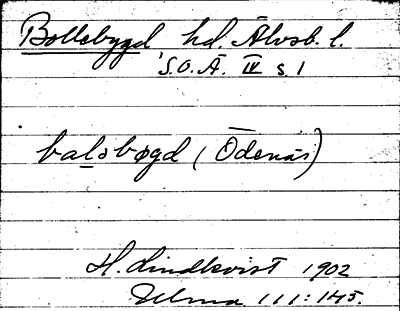 Bollebygd hd. Älvsb. l.
S.O.Ä. IV s. 1
balsbøgd (Ödenäs)
H. Lindkvist 1902
Uelma III:145.